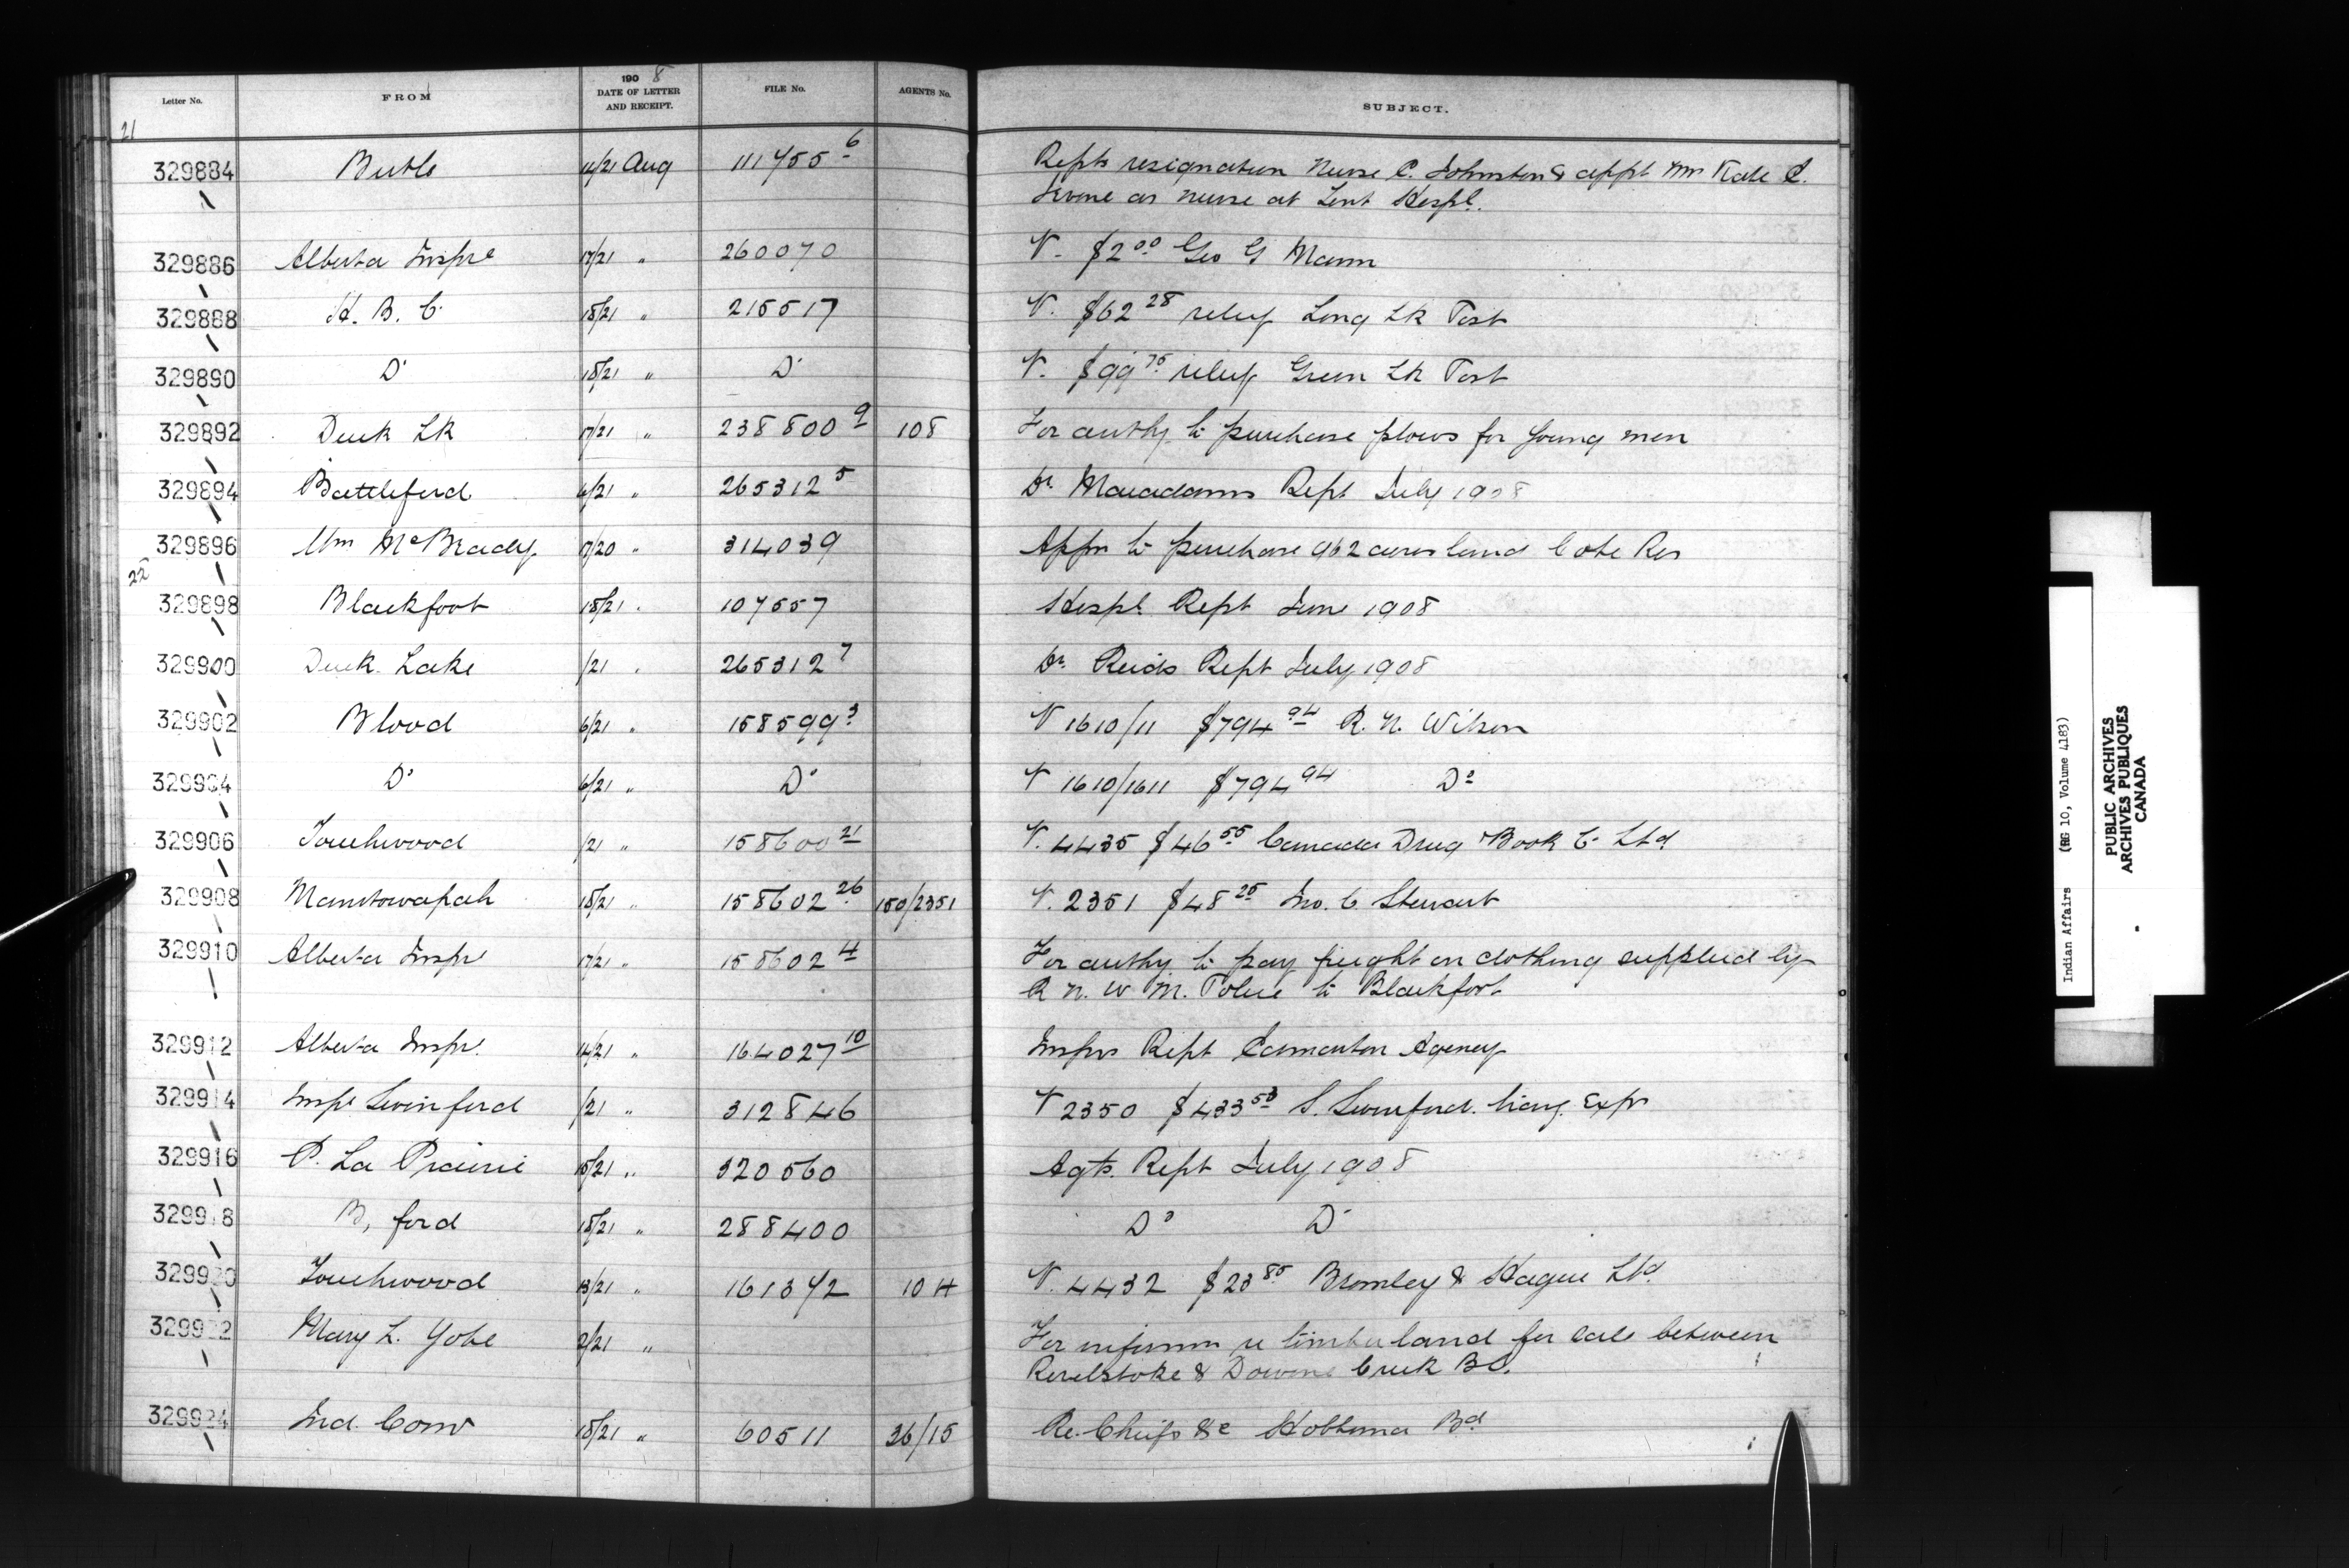 Letter No. FROM 1908 DATE OF LETTER AND RECEIPT. FILE No. AGENTS No. SUBJECT.
21
329884 Birtle 14/21 Aug 111455 6 Repts resignation Nurse C. Johnston & appt Mrs Kate E.
Irvine as nurse at Tent Hospl.
329886 Alberta Inspr 17/21 " 260070 V. $2 00 Geo G Mann
329888 H. B. C. 18/21 " 215517 V. $62 28 relief Long Lk Post
329890 Do 18/21 " Do V. $99 75 relief Green Lk Post
329892 Duck Lk 17/21 " 238800 9 108 For authy to purchase plows for young men
329894 Battleford 6/21 " 265312 5 Dr Macadams Rept July 1908
329896 Wm McBrady 17/20 " 314039 Appn to purchase 962 acres land Cote Res
22
329898 Blackfoot 18/21 " 107557 Hospl Rept June 1908
329900 Duck Lake /21 " 265312 7 Dr Reids Rept July 1908
329902 Blood 6/21 " 158599 3 V 1610/11 $794 94 R. N. Wilson
329904 Do 6/21 " Do V 1610/1611 $794 94 Do
329906 Touchwood /21 " 158600 21 V. 4435 $46 55 Canada Drug & Book Co Ltd
329908 Manitowapah 18/21 " 158602 26 150/2351 V. 2351 $48 25 Jno. C Stewart
329910 Alberta Inspr 17/21 " 158602 4 For authy to pay freight on clothing supplied by
R N. W M. Police to Blackfoot
329912 Alberta Inspr. 14/21 " 164027 10 Insprs Rept Edmonton Agency
329914 Inspr Swinford /21 " 312846 V 2350 $433 53 S. Swinford. travg. Exps
329916 P. La Prairie 15/21 " 320560 Agts. Rept July 1908
329918 B, ford 18/21 " 288400 Do Do
329920 Touchwood 13/21 " 161342 104 V. 4432 $23 85 Bromley & Hague Ltd.
329922 Mary L. Yobe 2/21 " For informn re timber land for sale between
Revelstoke & Downe Creek BC.
329924 Ind. Comr 18/21 " 60511 36/15 Re. Chiefs &c Hobbema Bd
Indian Affairs (RG 10, Volume 4183)
PUBLIC ARCHIVES
ARCHIVES PUBLIQUES
CANADA